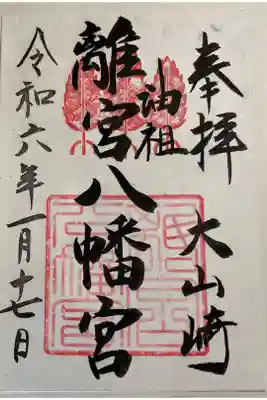 奉拝
大山崎
油祖
離宮八幡宮
令和六年一月十七日